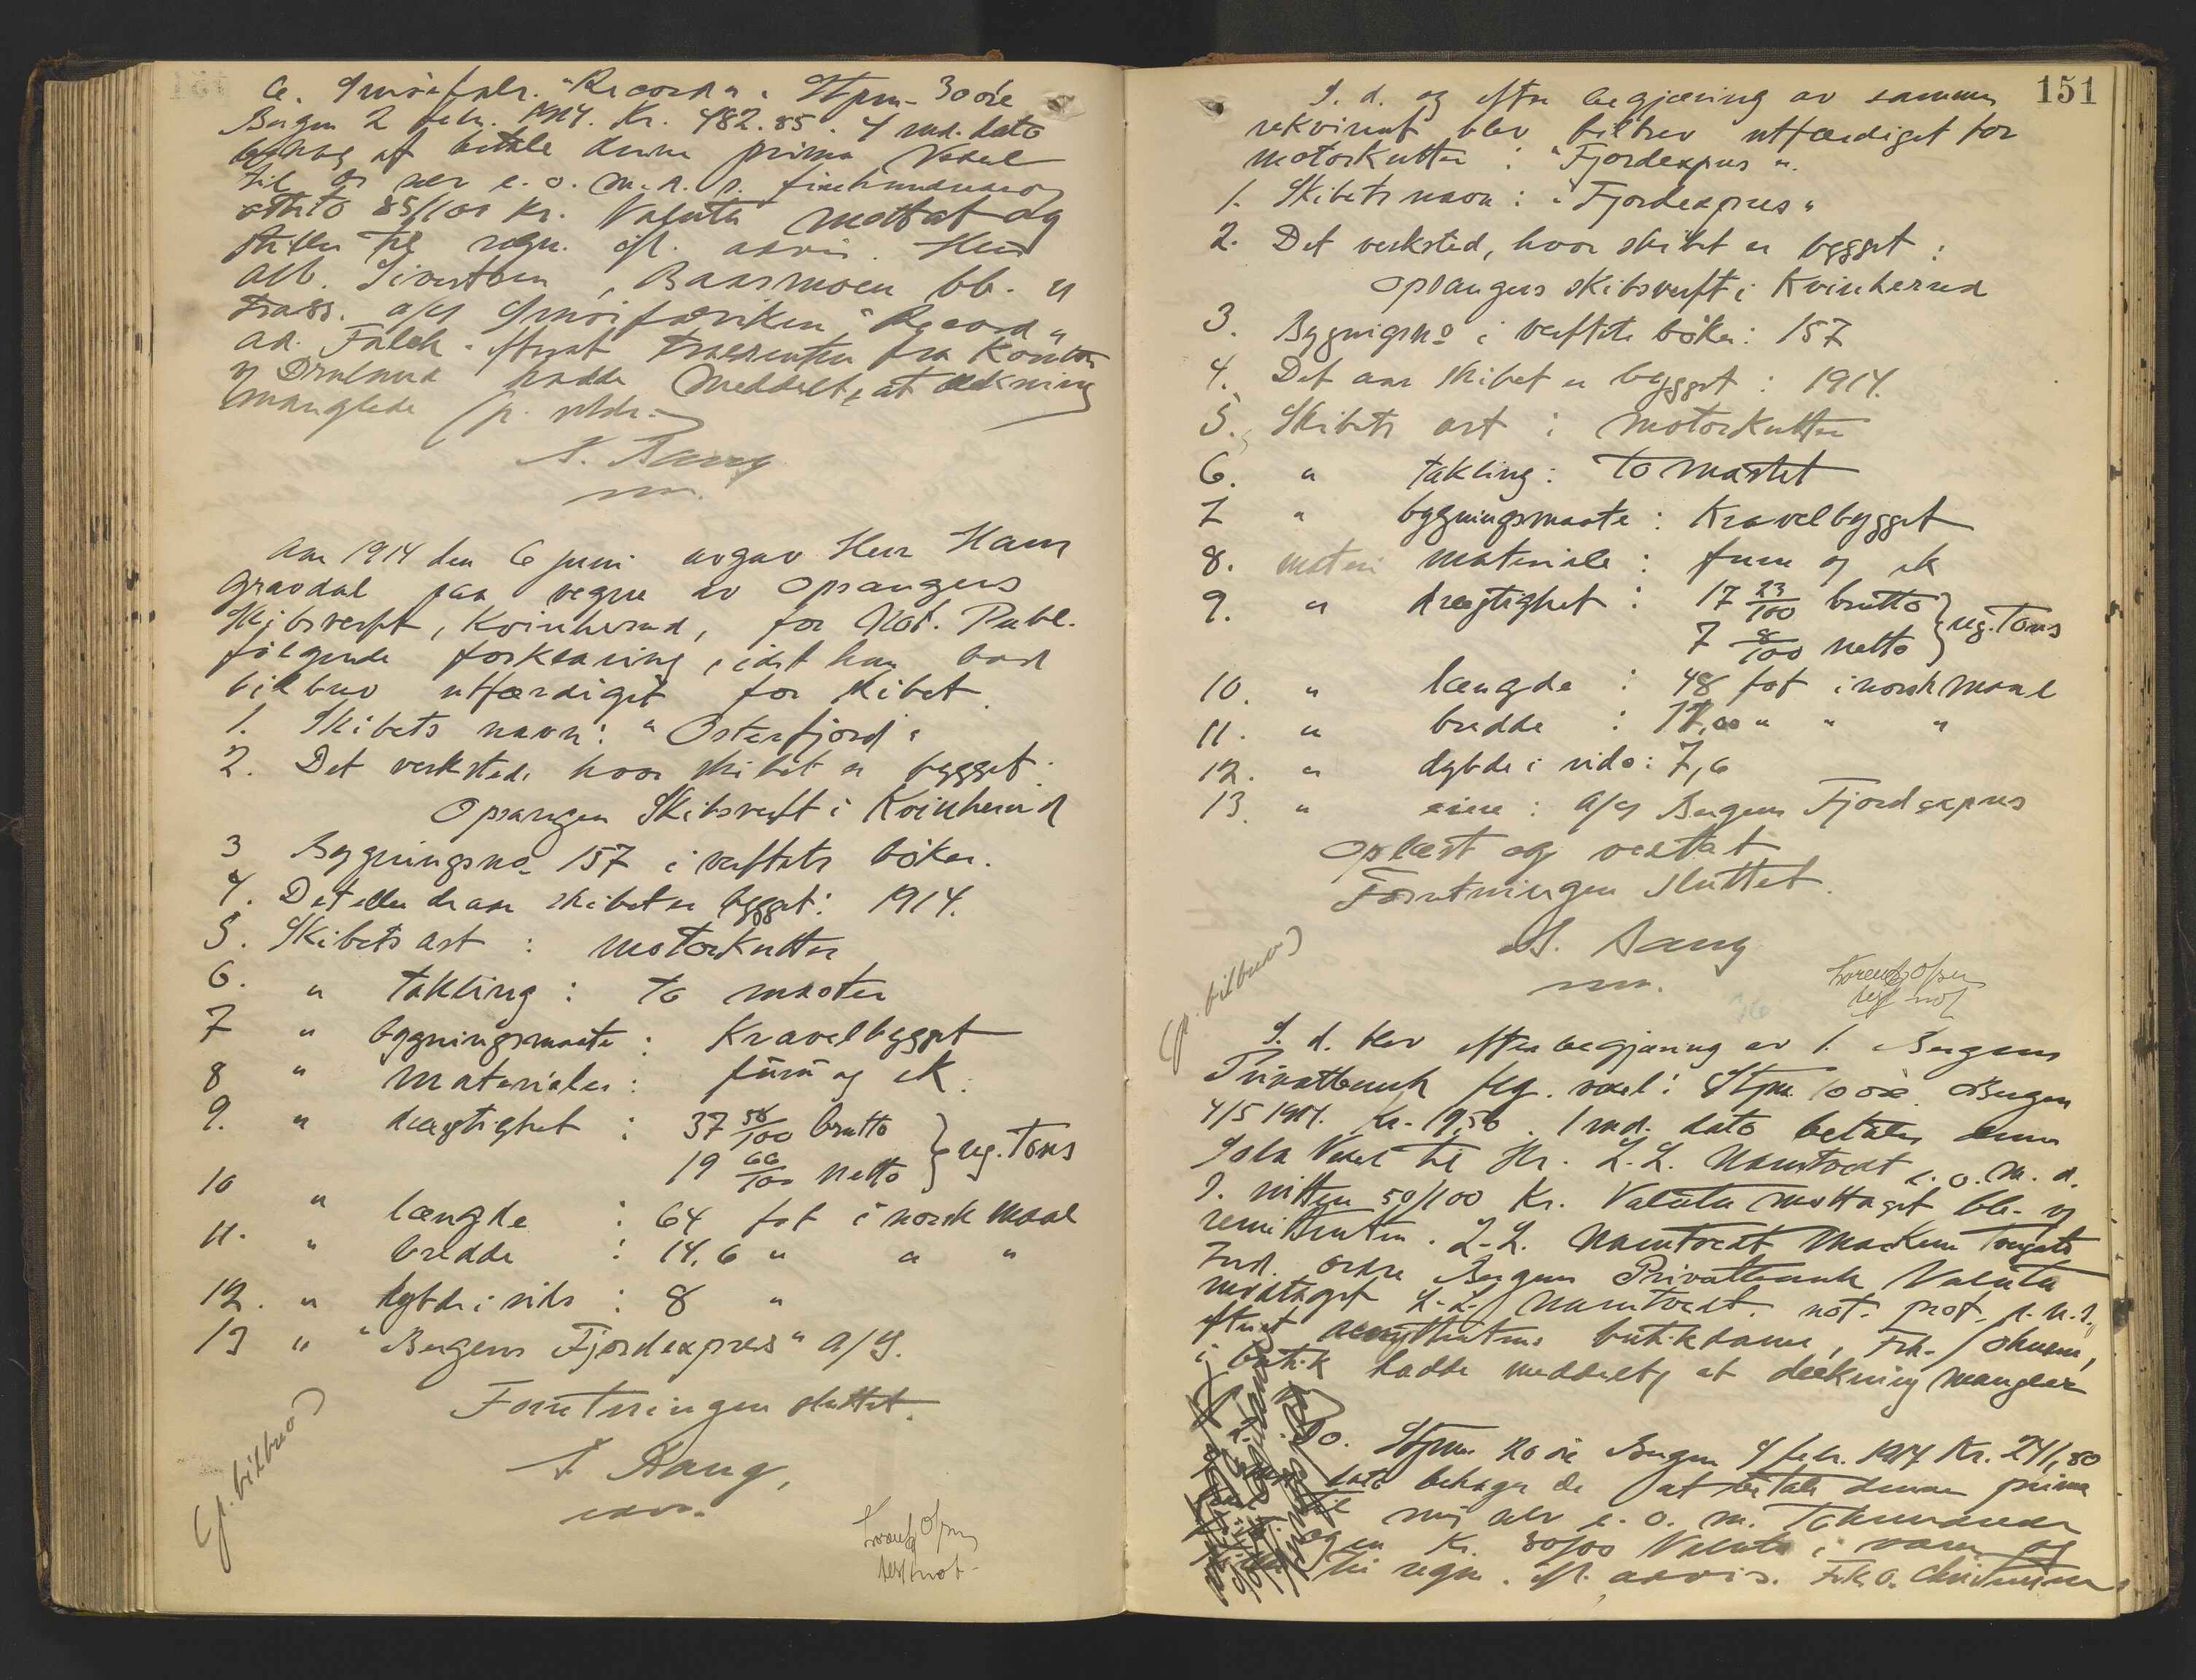 a. Smörfabr. "Record". Stpm. 30 öre
Bergen 2 febr. 1914. Kr. 482.85. 4 md. dato
behag at betale denne prima Veksel
til os selv e. o. m. d. s. firehundrede og
otteto 85/100 Kr. Valuta mottat og
stilles til regn. ifl. advis. Herr
Alb. Sivertsen, Baasmoen bb. y
Trass. a/s Smörfabrikken "Record"
Ad. Falch. efterat trassenten fra Kontor
y hadde meddelt, at dækning
manglede (p. vekdr.)
A. Aang
nn.
Aar 1914 den 6 juni avgav Herr Hans
Gravdal paa vegne av Opsangers
Skibsverft, Kvinherred, for Not. Publ.
følgende forklaring, idet han bad
bilbrev utfærdiget for skibet.
1. Skibets navn: "Osterfjord"
2. Det verksted, hvor skibet er bygget:
Opsangen Skibsverft i Kvinherred
3 Bygningsno 157 i verftets böker.
4. Det eller de aar skibet er bygget: 1914.
5. Skibets art: motorkutter
6. " takling: to master
7 " bygningsmaate: Kravelbygget
8 " materialer: furu og ek.
9. " drægtighet: 37 56/100 brutto } reg. Tons
19 66/100 netto
10 " længde: 64 fot i norsk maal
11. " bredde: 14,6 " " "
12. " dybde i rids: 8 "
13 " "Bergens Fjordexpres" A/S.
Forretningen sluttet.
A Aang,
nn.
(p. bilbrev)
151
S. d. og efter begjæring av samme
rekvirent blev bilbrev utfærdiget for
motorkutter: "Fjordexpres".
1. Skibets navn: "Fjordexpres"
2. Det verksted, hvor skibet er bygget:
Opsangers skibsverft i Kvinherred
3. Bygnigsno i verftets böker: 157
4. Det aar skibet er bygget: 1914.
5. Skibets art: motorkutter
6. " takling: to mastet
7 " bygningsmaate: Kravelbygget
8. materi materiale: furu og ek
9. " drægtighet: 17 23/100 brutto } reg. Tons
7 8/100 netto
10. " længde: 48 fot i norsk maal
11. " bredde: 11,00 " " "
12. " dybde i rids: 7,6
13. " eiere: A/S Bergens Fjordexpres
Oplæst og vedtat
Forretningen sluttet.
A. Aang
nn.
(p. bilbrev)
S. d. blev efter begjæring av 1. Bergens
Privatbank flg. veksel: Stpm. 10 öre. Bergen
4/5 1914. Kr. 19,50. 1 md. dato betales denne
Sola Veksel til Hr. L. L. Namtvedt e. o. m. d.
s. nitten 50/100 Kr. Valuta mottaget bb. y
remittenten. L. L. Namtvedt Marken Torgate
End. ordre Bergens Privatbank Valuta
modtaget L. L. Namtvedt. not. prot. p. n. b.
efterat acceptantens butikdame, Frk. Johnsen,
i butik hadde meddelt, at dækning mangler
Do. Stpm. 20 öre Bergen 4 febr. 1914 Kr. 241,80
dato behager de at betale denne prima
til mig selv e. o. m. Tohundrede
og en Kr. 80/100 Valuta i varer og
til regn. ifl. advis. Frk. O. Christensen